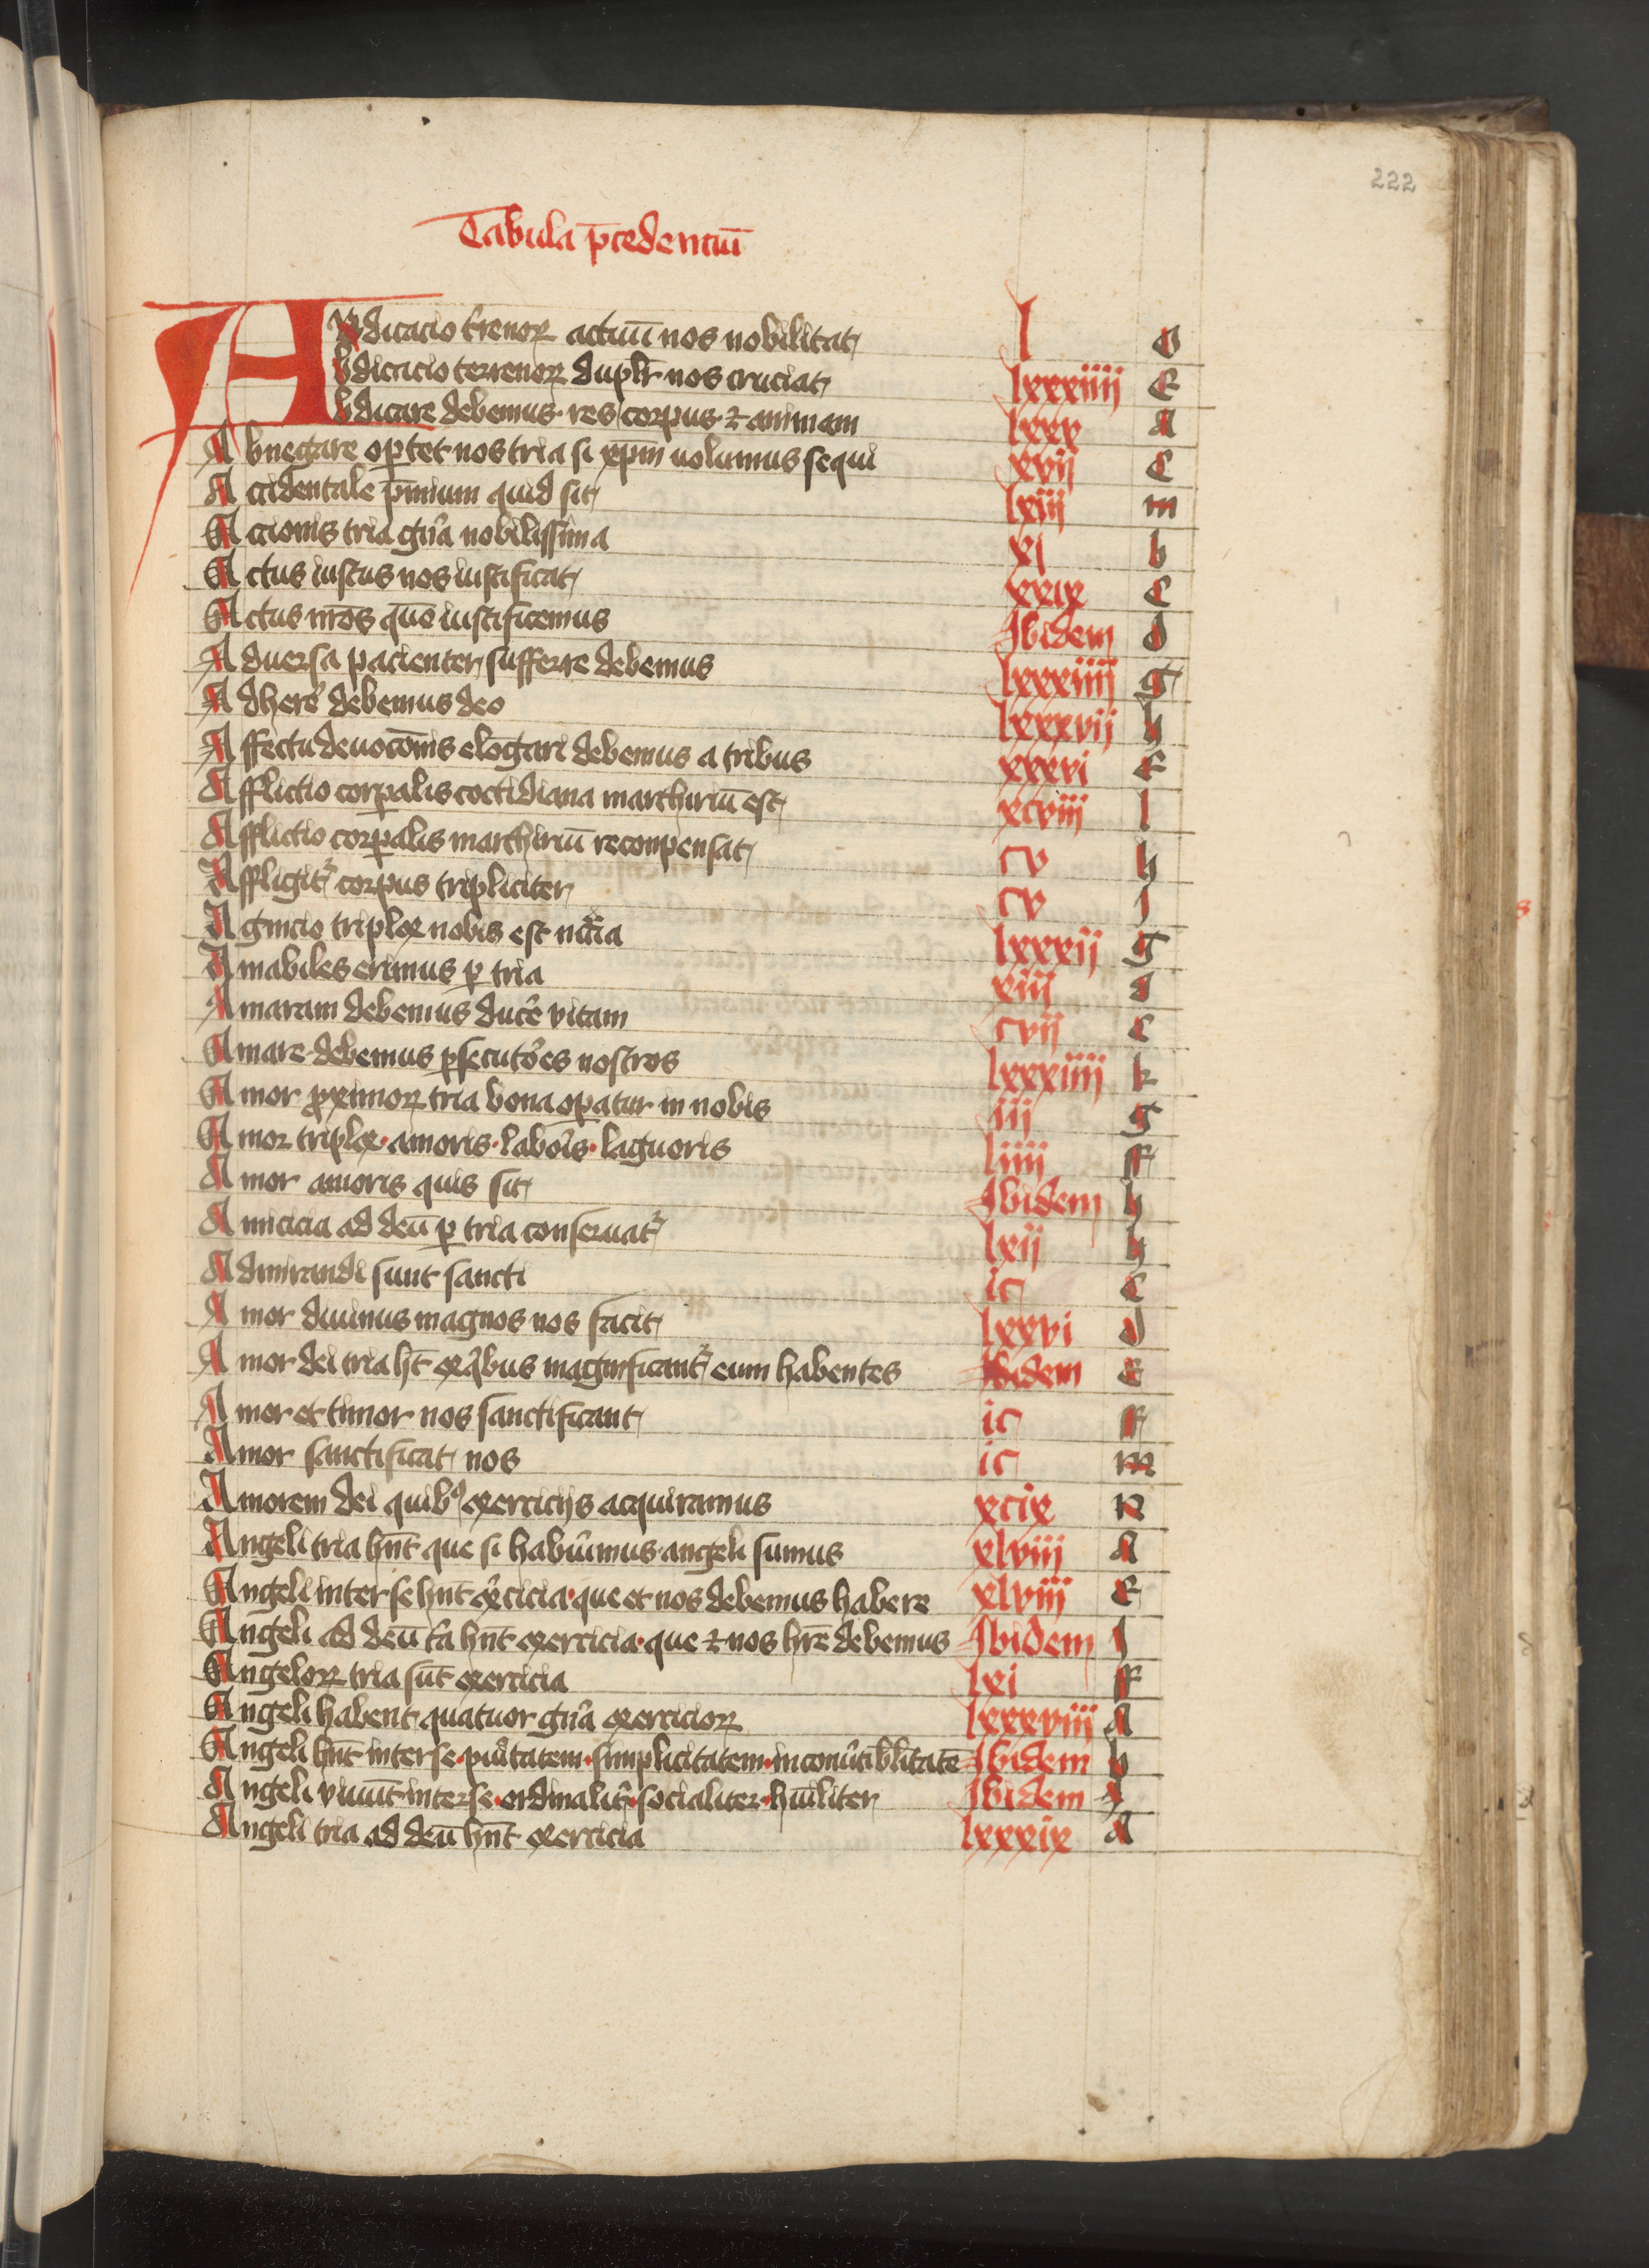 222
Tabula p̄cedenciū
Abdicacio t̄renoꝝ actuū nos nobilitat l o
Abdicacio terrenoꝝ duplr̄ nos cruciat lxxxiiij E
Abdicare debemus res corpus ⁊ animam lxxx A
Abnegare oꝑtet nos tria si xp̄m uolumus sequi xvij C
Accidentale p̄mium quid sit lxiij m
Accionis tria gn̄a nobilissima xj b
Actus iustus nos iustificat xxix C
Actus nr̄os quō iustificemus Ibidem d
Aduersa pacienter sufferre debemus lxxxiiij g
Adherē debemus deo lxxxvij h
Affectu deuocōnis elōgari debemus a tribus xxxvi E
Afflictio corꝑalis coctidiana marthiriū est xcviij l
Afflictio corꝑalis marthiriū recompensat cv h
Affligit᷑ corpus tripliciter cv j
Agnicio triplex nobis est nc̄cia lxxxij g
Amabiles erimus ꝑ tria xiij d
Amaram debemus ducē vitam cvij C
Amare debemus ꝑsecutōes nostros lxxxiiij k
Amor ꝓximoꝝ tria bona oꝑatur in nobis iij g
Amor triplex · amoris · labōis · lāguoris liiij ff
Amor amoris quis sit Ibidem h
Amicicia ad deū ꝑ tria conseruat᷑ lxij h
Admirandi sunt sancti ic C
Amor diuinus magnos nos facit lxxvi d
Amor dei tria ht̄ ex q̄bus magnificant᷑ eum habentes Ibidem E
Amor et timor nos sanctificant ic ff
Amor sanctificat nos ic m
Amorem dei quibꝰ exercicijs acquiramus xcix N
Angeli tria hn̄t que si habuīmus angeli sumus xlviij A
Angeli inter se hn̄t ex̄cicia · que et nos debemus habere xlviij E
Angeli ad deū t̄a hn̄t exercicia · que ⁊ nos hr̄e debemus Ibidem j
Angeloꝝ tria sūt exercicia lxi ff
Angeli habent quatuor gn̄a exercicioꝝ lxxxviij A
Angeli hn̄t inter se · puītatem · simplicitatem · inconūtiblitatē Ibidem b
Angeli viuūt inter se · ordinalit̄ · socialiter · hūiliter Ibidem
Angeli tria ad deū hn̄t exercicia lxxxix A